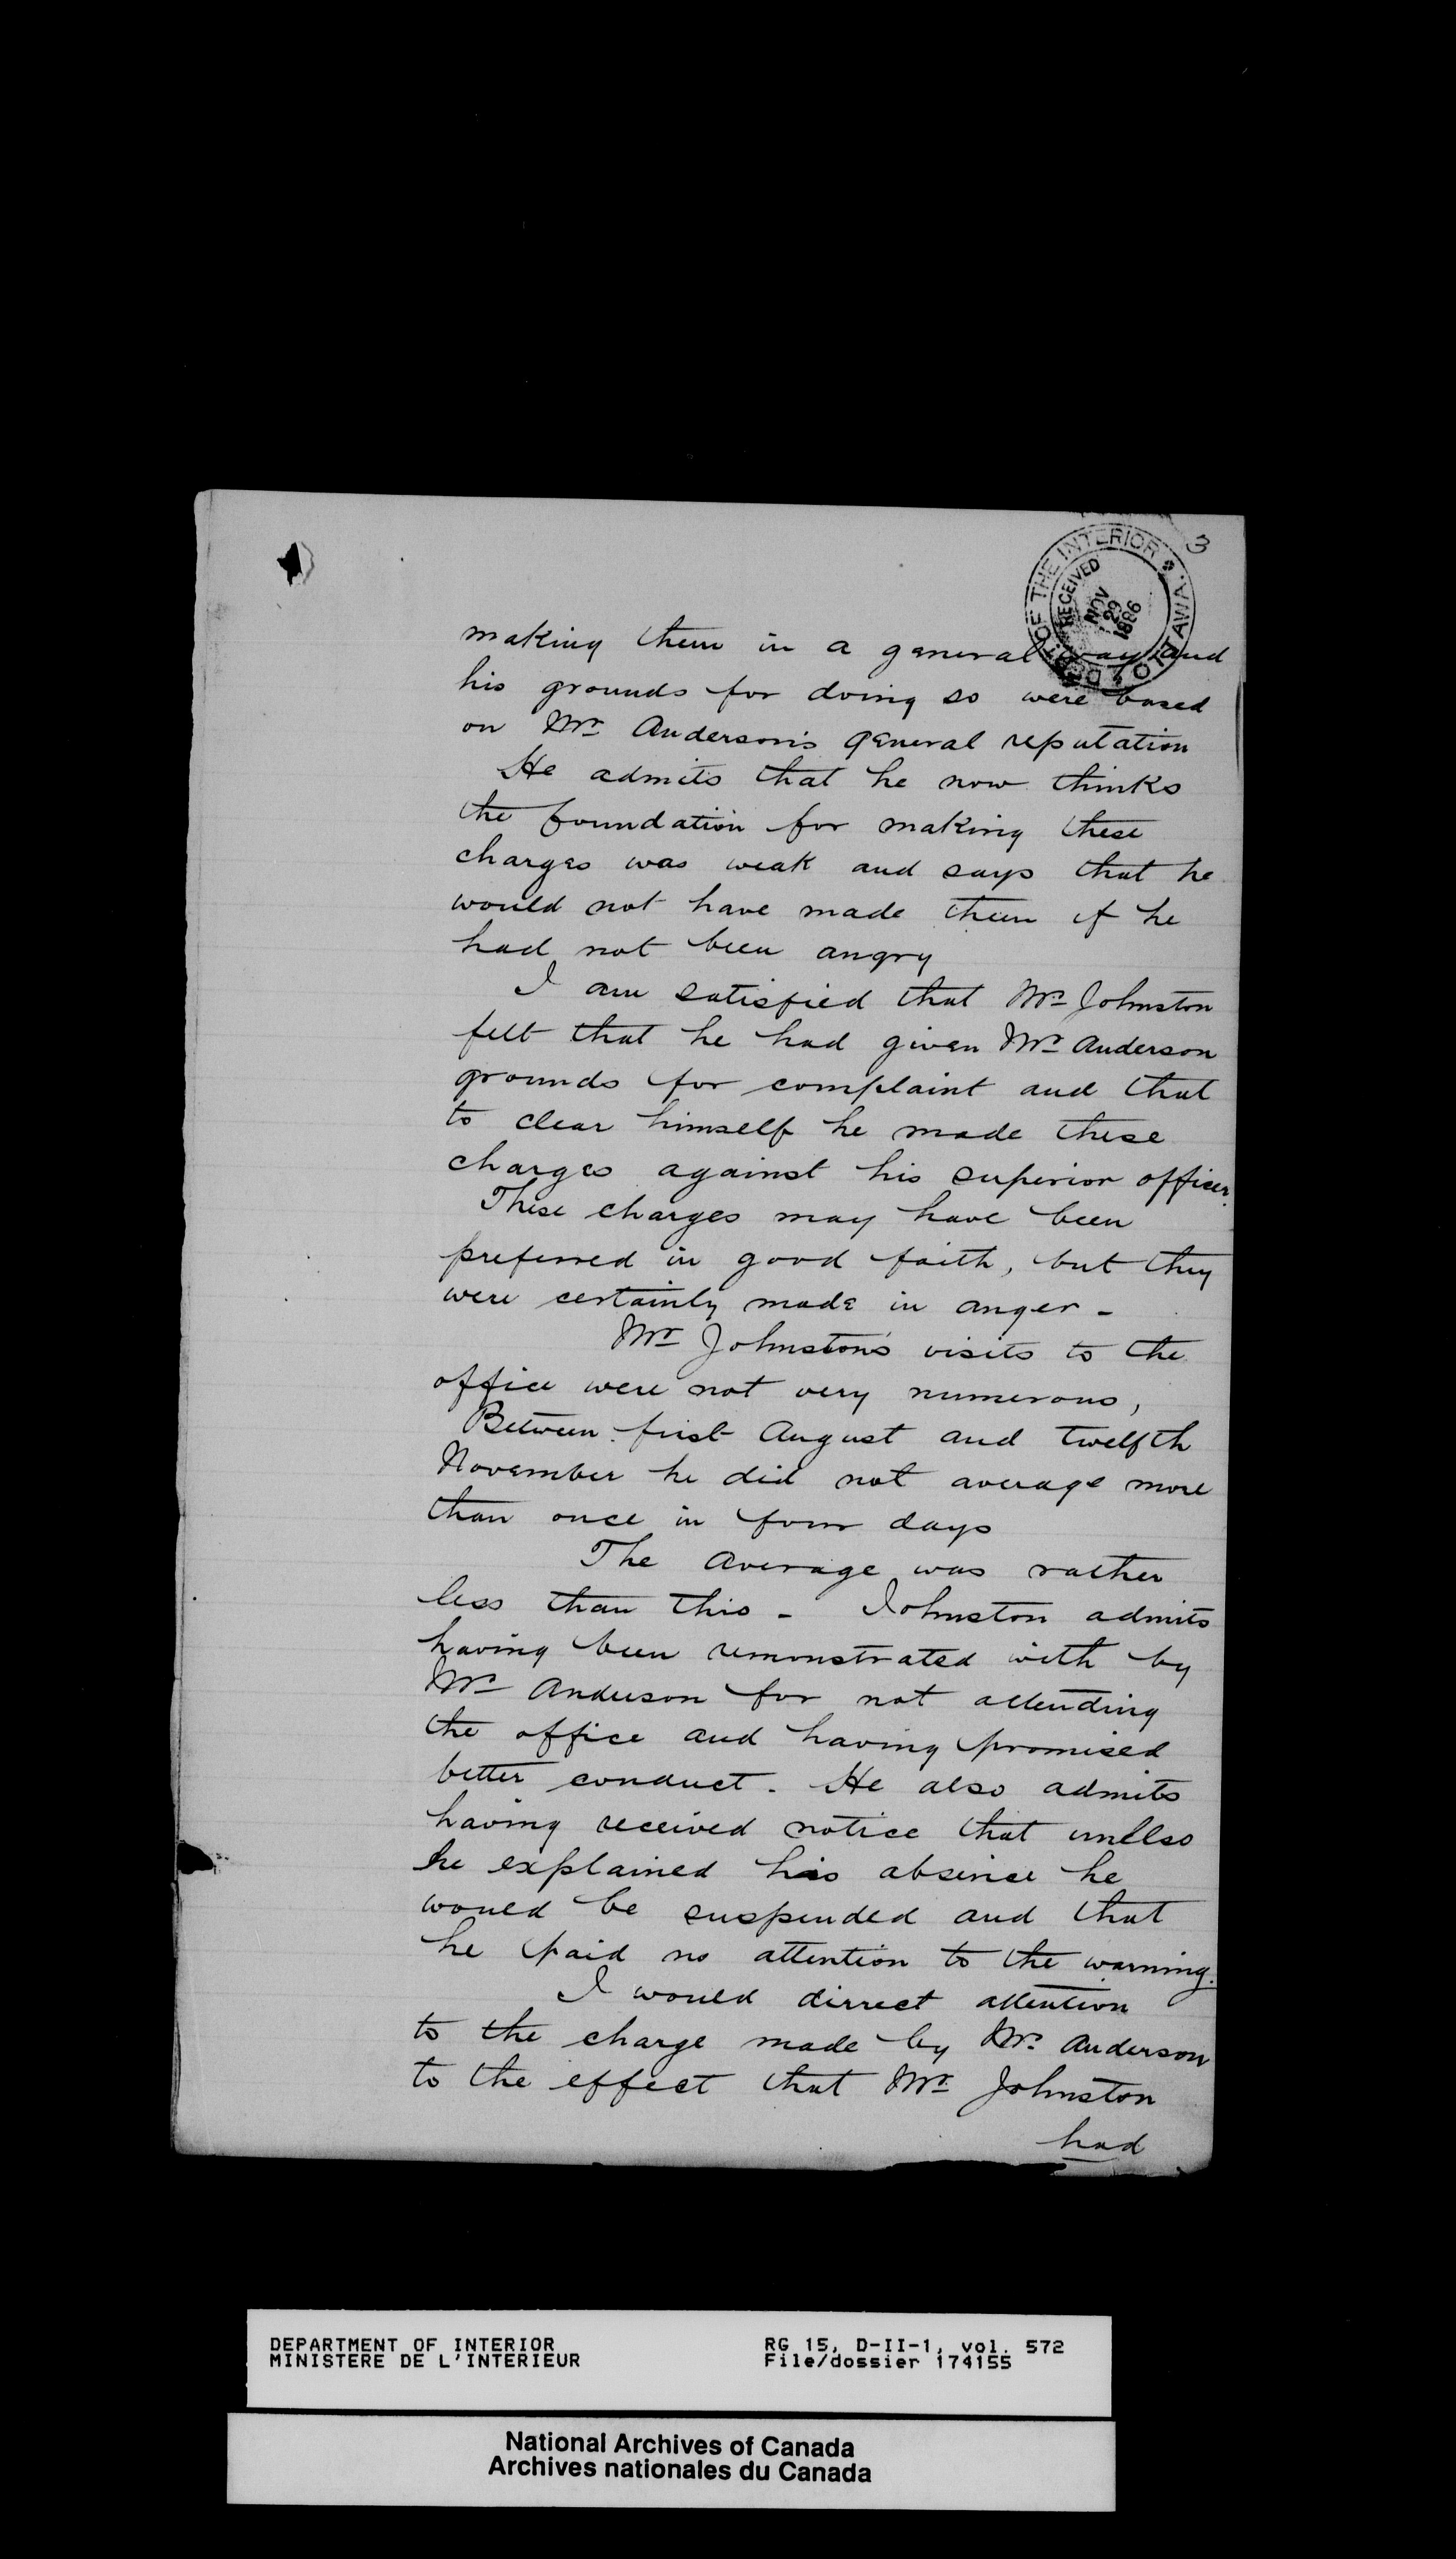 3
DEPT. OF THE INTERIOR * OTTAWA
RECEIVED
NOV
29
1886
making them in a general way and
his grounds for doing so were based
on Mr Anderson's general reputation
He admits that he now thinks
the foundation for making these
charges was weak and says that he
would not have made them if he
had not been angry
I am satisfied that Mr Johnston
felt that he had given Mr Anderson
grounds for complaint and that
to clear himself he made these
charges against his superior officer.
These charges may have been
preferred in good faith, but they
were certainly made in anger -
Mr Johnston's visits to the
office were not very numerous,
Between first August and twelfth
November he did not average more
than once in four days
The average was rather
less than this - Johnston admits
having been remonstrated with by
Mr Anderson for not attending
the office and having promised
better conduct. He also admits
having received notice that unless
he explained his absence he
would be suspended and that
he paid no attention to the warning.
I would dirrect attention
to the charge made by Mr. Anderson
to the effect that Mr Johnston
had
DEPARTMENT OF INTERIOR
MINISTERE DE L'INTERIEUR
RG 15, D-II-1, vol. 572
File/dossier 174155
National Archives of Canada
Archives nationales du Canada